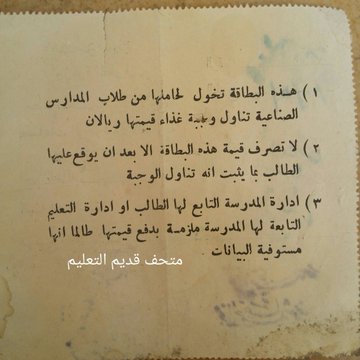 ١) هذه البطاقة تخول لحاملها من طلاب المدارس
الصناعية تناول وجبة غذاء قيمتها ريالان
٢) لا تصرف قيمة هذه البطاقة الا بعد ان يوقع عليها
الطالب بما يثبت انه تناول الوجبة
٣) ادارة المدرسة التابع لها الطالب او ادارة التعليم
التابعة لها المدرسة ملزمة بدفع قيمتها طالما انها
مستوفية البيانات
متحف قديم التعليم